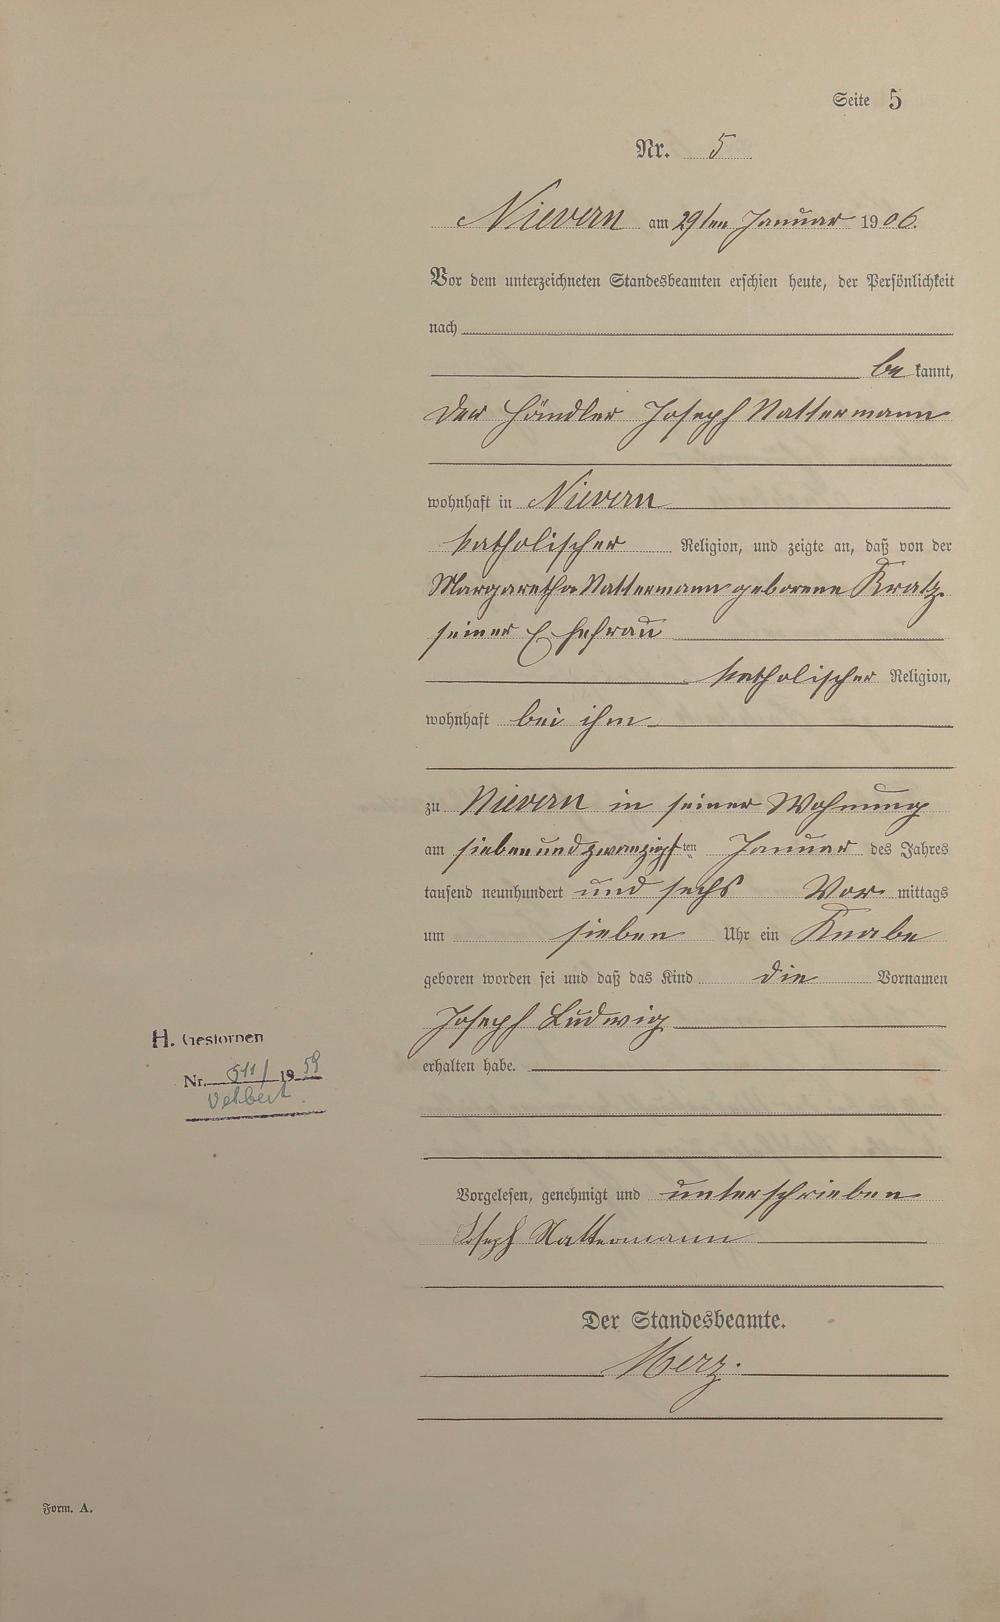 Seite 5
Nr. 5
Nievern am 29ten Januar 1906.
Vor dem unterzeichneten Standesbeamten erschien heute, der Persönlichkeit
nach
be kannt,
der Händler Joseph Nattermann
wohnhaft in Nievern
katholischer Religion, und zeigte an, daß von der
Margaretha Nattermann geborene Kratz
seiner Ehefrau
katholischer Religion,
wohnhaft bei ihm
zu Nievern in seiner Wohnung
am siebenundzwanzigsten Januar des Jahres
tausend neunhundert und sechs Vor mittags
um sieben Uhr ein Knabe
geboren worden sei und daß das Kind die Vornamen
Joseph Ludwig
erhalten habe.
H. Gestorben
Nr. 511/1959
Velbert
Vorgelesen, genehmigt und unterschrieben
Joseph Nattermann
Der Standesbeamte.
Merz.
Form. A.